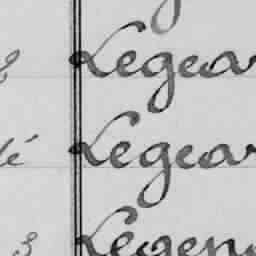 Legear
té Legear
3 Legen